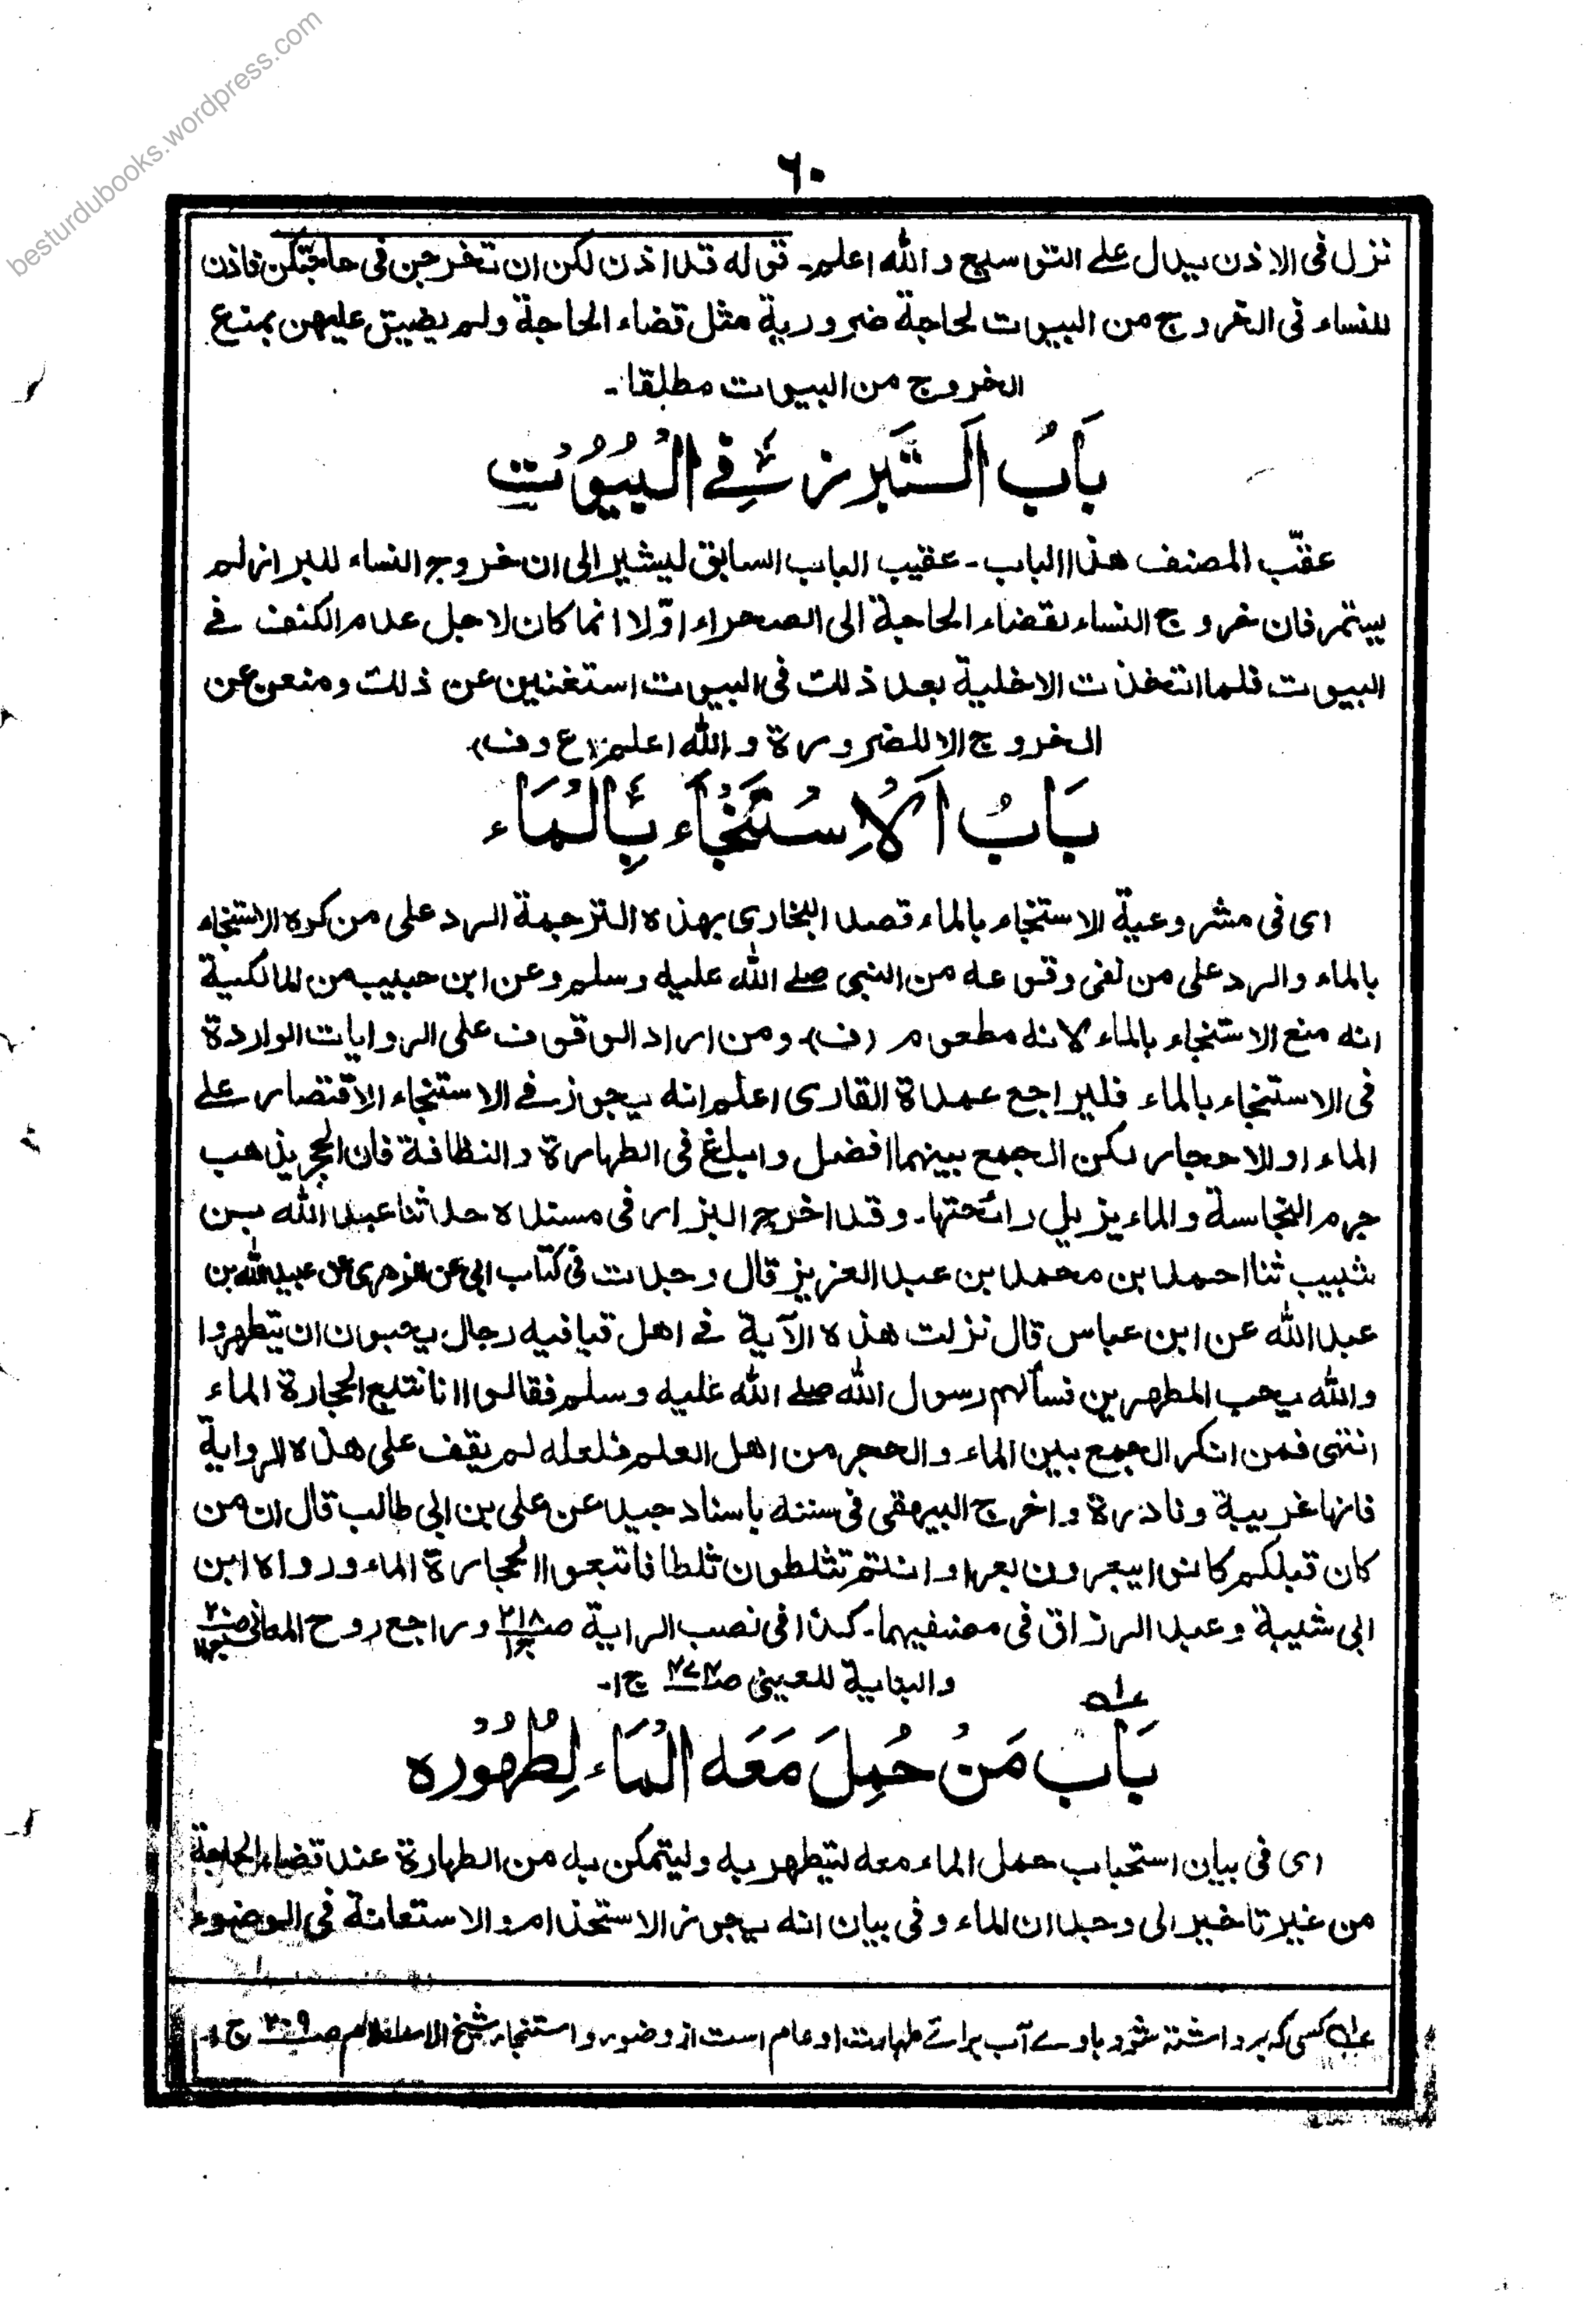 besturdubooks.wordpress.com
٦٠
نزل فى الاذن يدل على التوسيع والله اعلم۔ قوله قد اذن لكن ان تخرجن فى حاجتكن فاذن
للنساء فى الخروج من البيوت لحاجة ضرورية مثل قضاء الحاجة ولم يضيق عليهن بمنع
الخروج من البيوت مطلقا۔
بَابُ التَّبَرُّزِ فِي الْبُيُوْتِ
عقّب المصنف هذا الباب۔ عقيب الباب السابق ليشير الى ان خروج النساء للبراز لم
يستمر فان خروج النساء لقضاء الحاجة الى الصحراء اوّلا انما كان لاجل عدم الكنف فى
البيوت فلما اتخذت الاخلية بعد ذلك فى البيوت استغنين عن ذلك ومنعن عن
الخروج الا للضرورة والله اعلم (ع وف)
بَابُ الْاِسْتِنْجَاءِ بِالْمَاءِ
اى فى مشروعية الاستنجاء بالماء قصد البخارى بهذه الترجمة الرد على من كره الاستنجاء
بالماء والرد على من نفى وقوعه من النبى صلى الله عليه وسلم وعن ابن حبيب من المالكية
انه منع الاستنجاء بالماء لانه مطعوم (ف)۔ ومن اراد الوقوف على الروايات الواردة
فى الاستنجاء بالماء فليراجع عمدة القارى اعلم انه يجوز فى الاستنجاء الاقتصار على
الماء او الاحجار لكن الجمع بينهما افضل وابلغ فى الطهارة والنظافة فان الحجر يذهب
جرم النجاسة والماء يزيل رائحتها۔ وقد اخرج البزار فى مسنده حدثنا عبد الله بن
شبيب ثنا احمد بن محمد بن عبد العزيز قال وجدت فى كتاب ابى عن الزهرى عن عبيد الله بن
عبد الله عن ابن عباس قال نزلت هذه الآية فى اهل قبا فيه رجال يحبون ان يتطهروا
والله يحب المطهرين فسألهم رسول الله صلى الله عليه وسلم فقالوا انا نتبع الحجارة الماء
انتهى فمن انكر الجمع بين الماء والحجر من اهل العلم فلعله لم يقف على هذه الرواية
فانها غريبة ونادرة واخرج البيهقى فى سننه باسناد جيد عن على بن ابى طالب قال ان من
كان قبلكم كانوا يبعرون بعرا وانتم تثلطون ثلطا فاتبعوا الحجارة الماء ورواه ابن
ابى شيبة وعبد الرزاق فى مصنفيهما۔ كذا فى نصب الراية ص٢١٨ ج١ وراجع روح المعانى ص٢٠
والبناية للعينى ص ج١۔
بَابُ مَنْ حُمِلَ مَعَه الْمَاء لِطُهُوْرِه
اى فى بيان استحباب حمل الماء معه ليتطهر به وليتمكن به من الطهارة عند قضاء الحاجة
من غير تاخير الى وجدان الماء وفى بيان انه يجوز الاستخدام والاستعانة فى الوضوء
عـه كسى كه برداشته شود باوے آب برائے طهارت او عام است از وضوء واستنجاء شيخ الاسلام ص٢٠٩ ج١